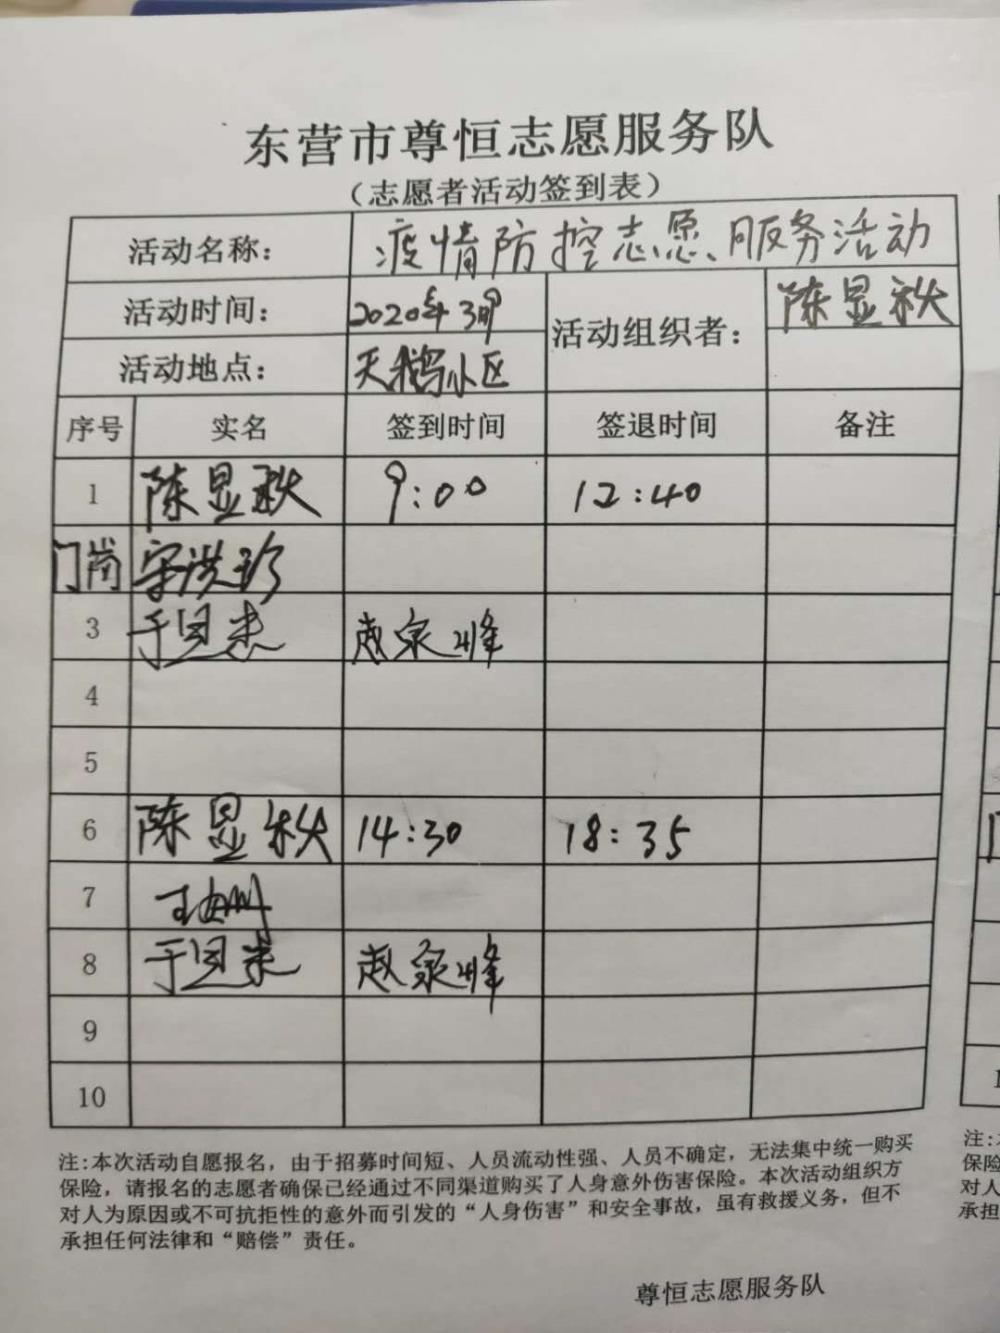 东营市尊恒志愿服务队
（志愿者活动签到表）
活动名称： 疫情防控志愿服务活动
活动时间： 2020年3月9日 活动组织者： 陈显秋
活动地点： 天鹅小区
序号 实名 签到时间 签退时间 备注
1 陈显秋 9:00 12:40
门岗 宋洪珍
3 赵泉峰
4
5
6 陈显秋 14:30 18:35
7
8 赵泉峰
9
10
注:本次活动自愿报名，由于招募时间短、人员流动性强、人员不确定，无法集中统一购买
保险，请报名的志愿者确保已经通过不同渠道购买了人身意外伤害保险。本次活动组织方
对人为原因或不可抗拒性的意外而引发的“人身伤害”和安全事故，虽有救援义务，但不
承担任何法律和“赔偿”责任。
尊恒志愿服务队
注:
保险
对人
承担